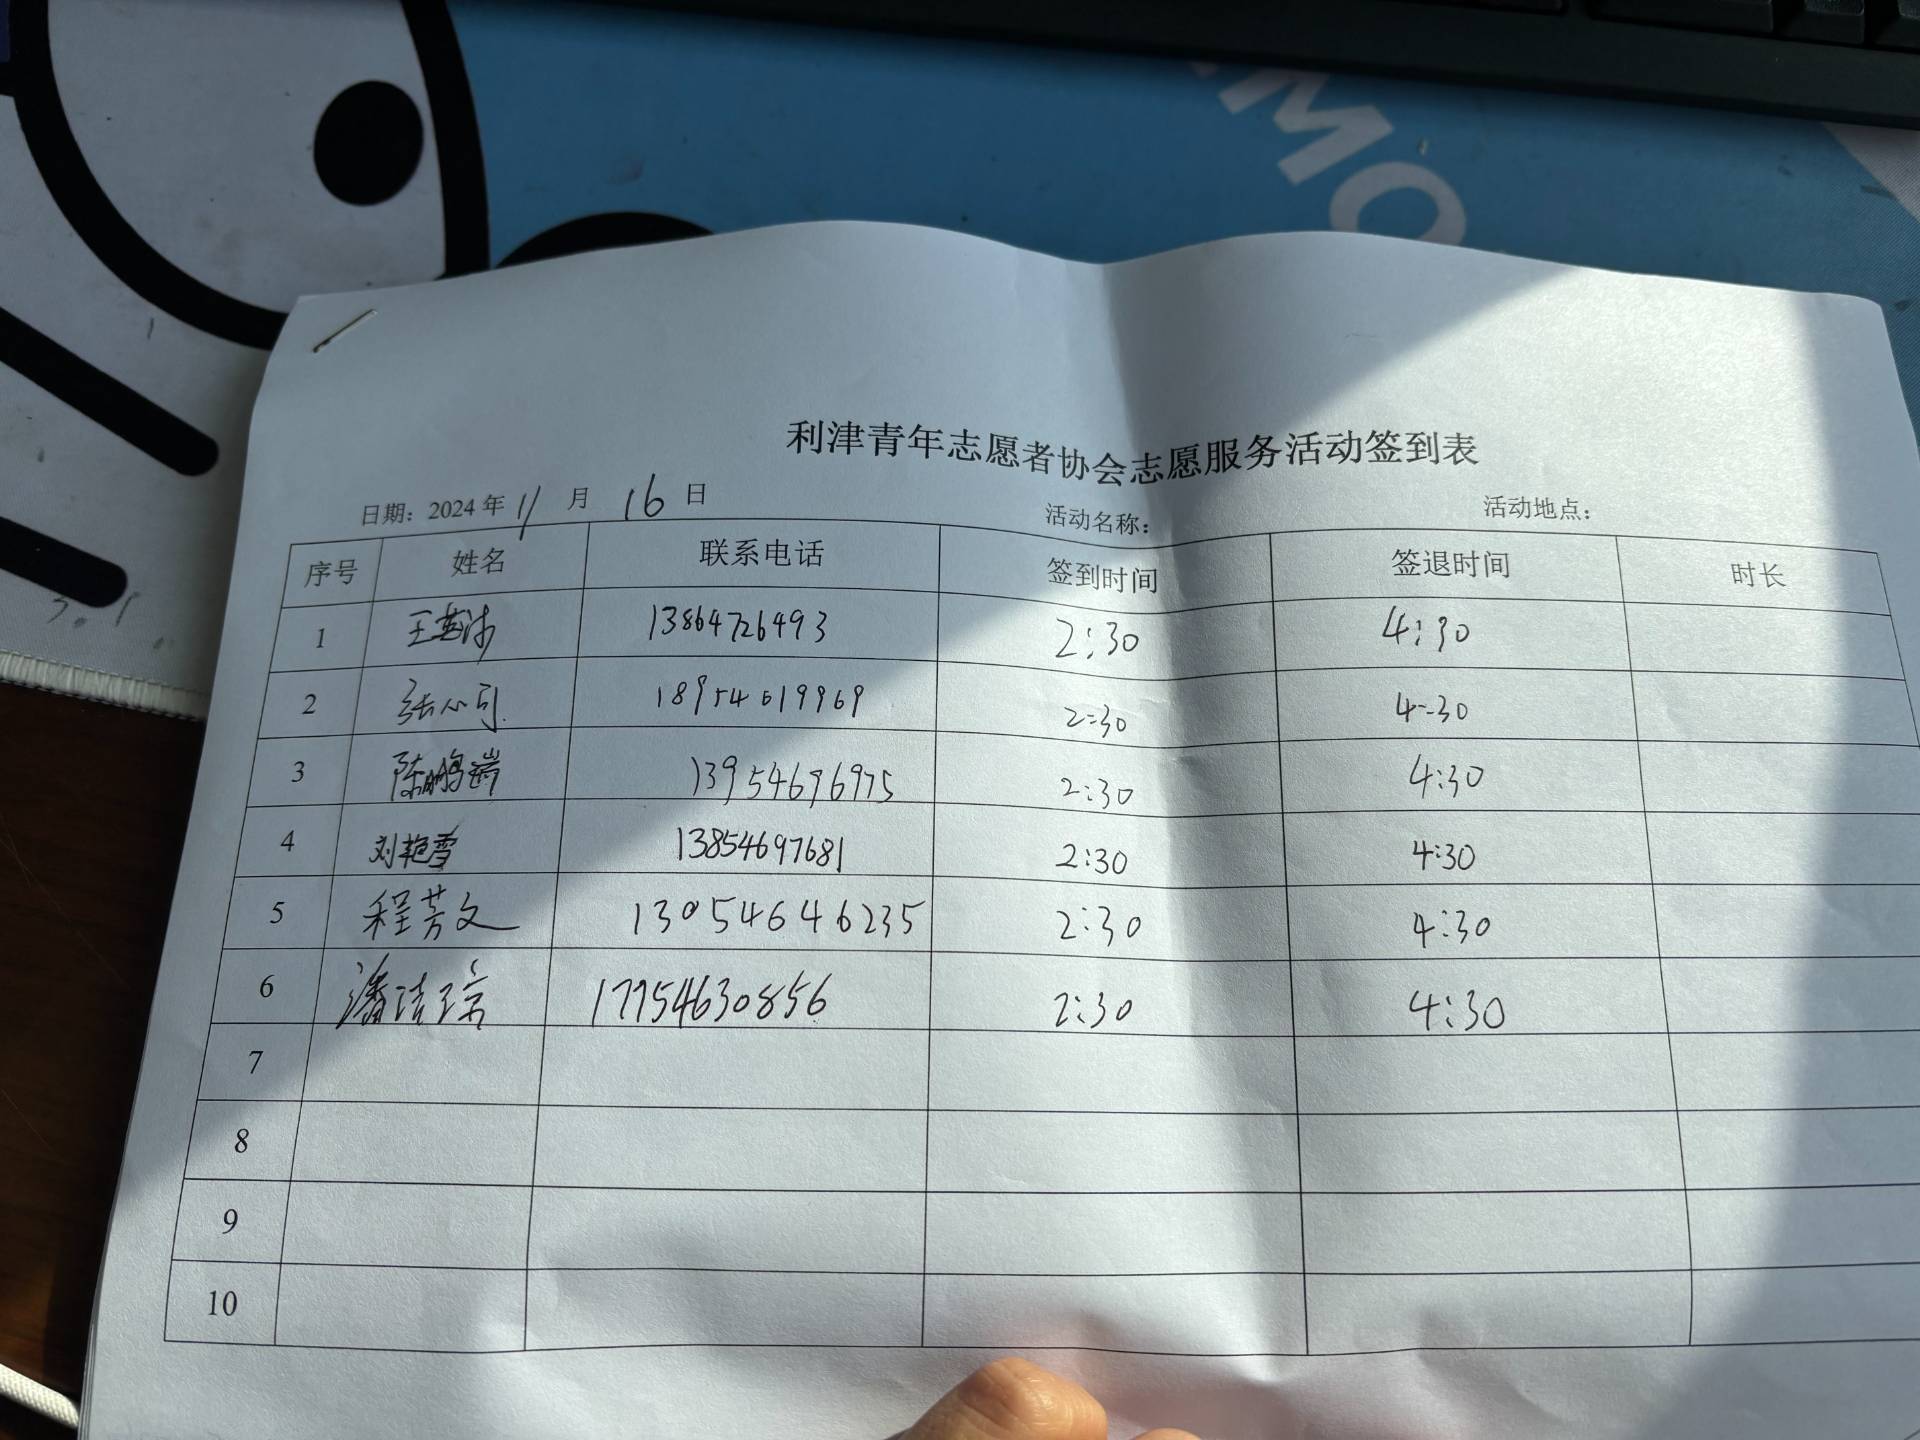 MO
利津青年志愿者协会志愿服务活动签到表
日期：2024 年 11 月 16 日 活动名称： 活动地点：
序号 姓名 联系电话 签到时间 签退时间 时长
1 13864726493 2:30 4:30
2 张小可 18954619969 2:30 4:30
3 陈鹏瑞 13954696975 2:30 4:30
4 刘艳雪 13854697681 2:30 4:30
5 程芳文 13054646235 2:30 4:30
6 潘洁琼 17754630856 2:30 4:30
7
8
9
10